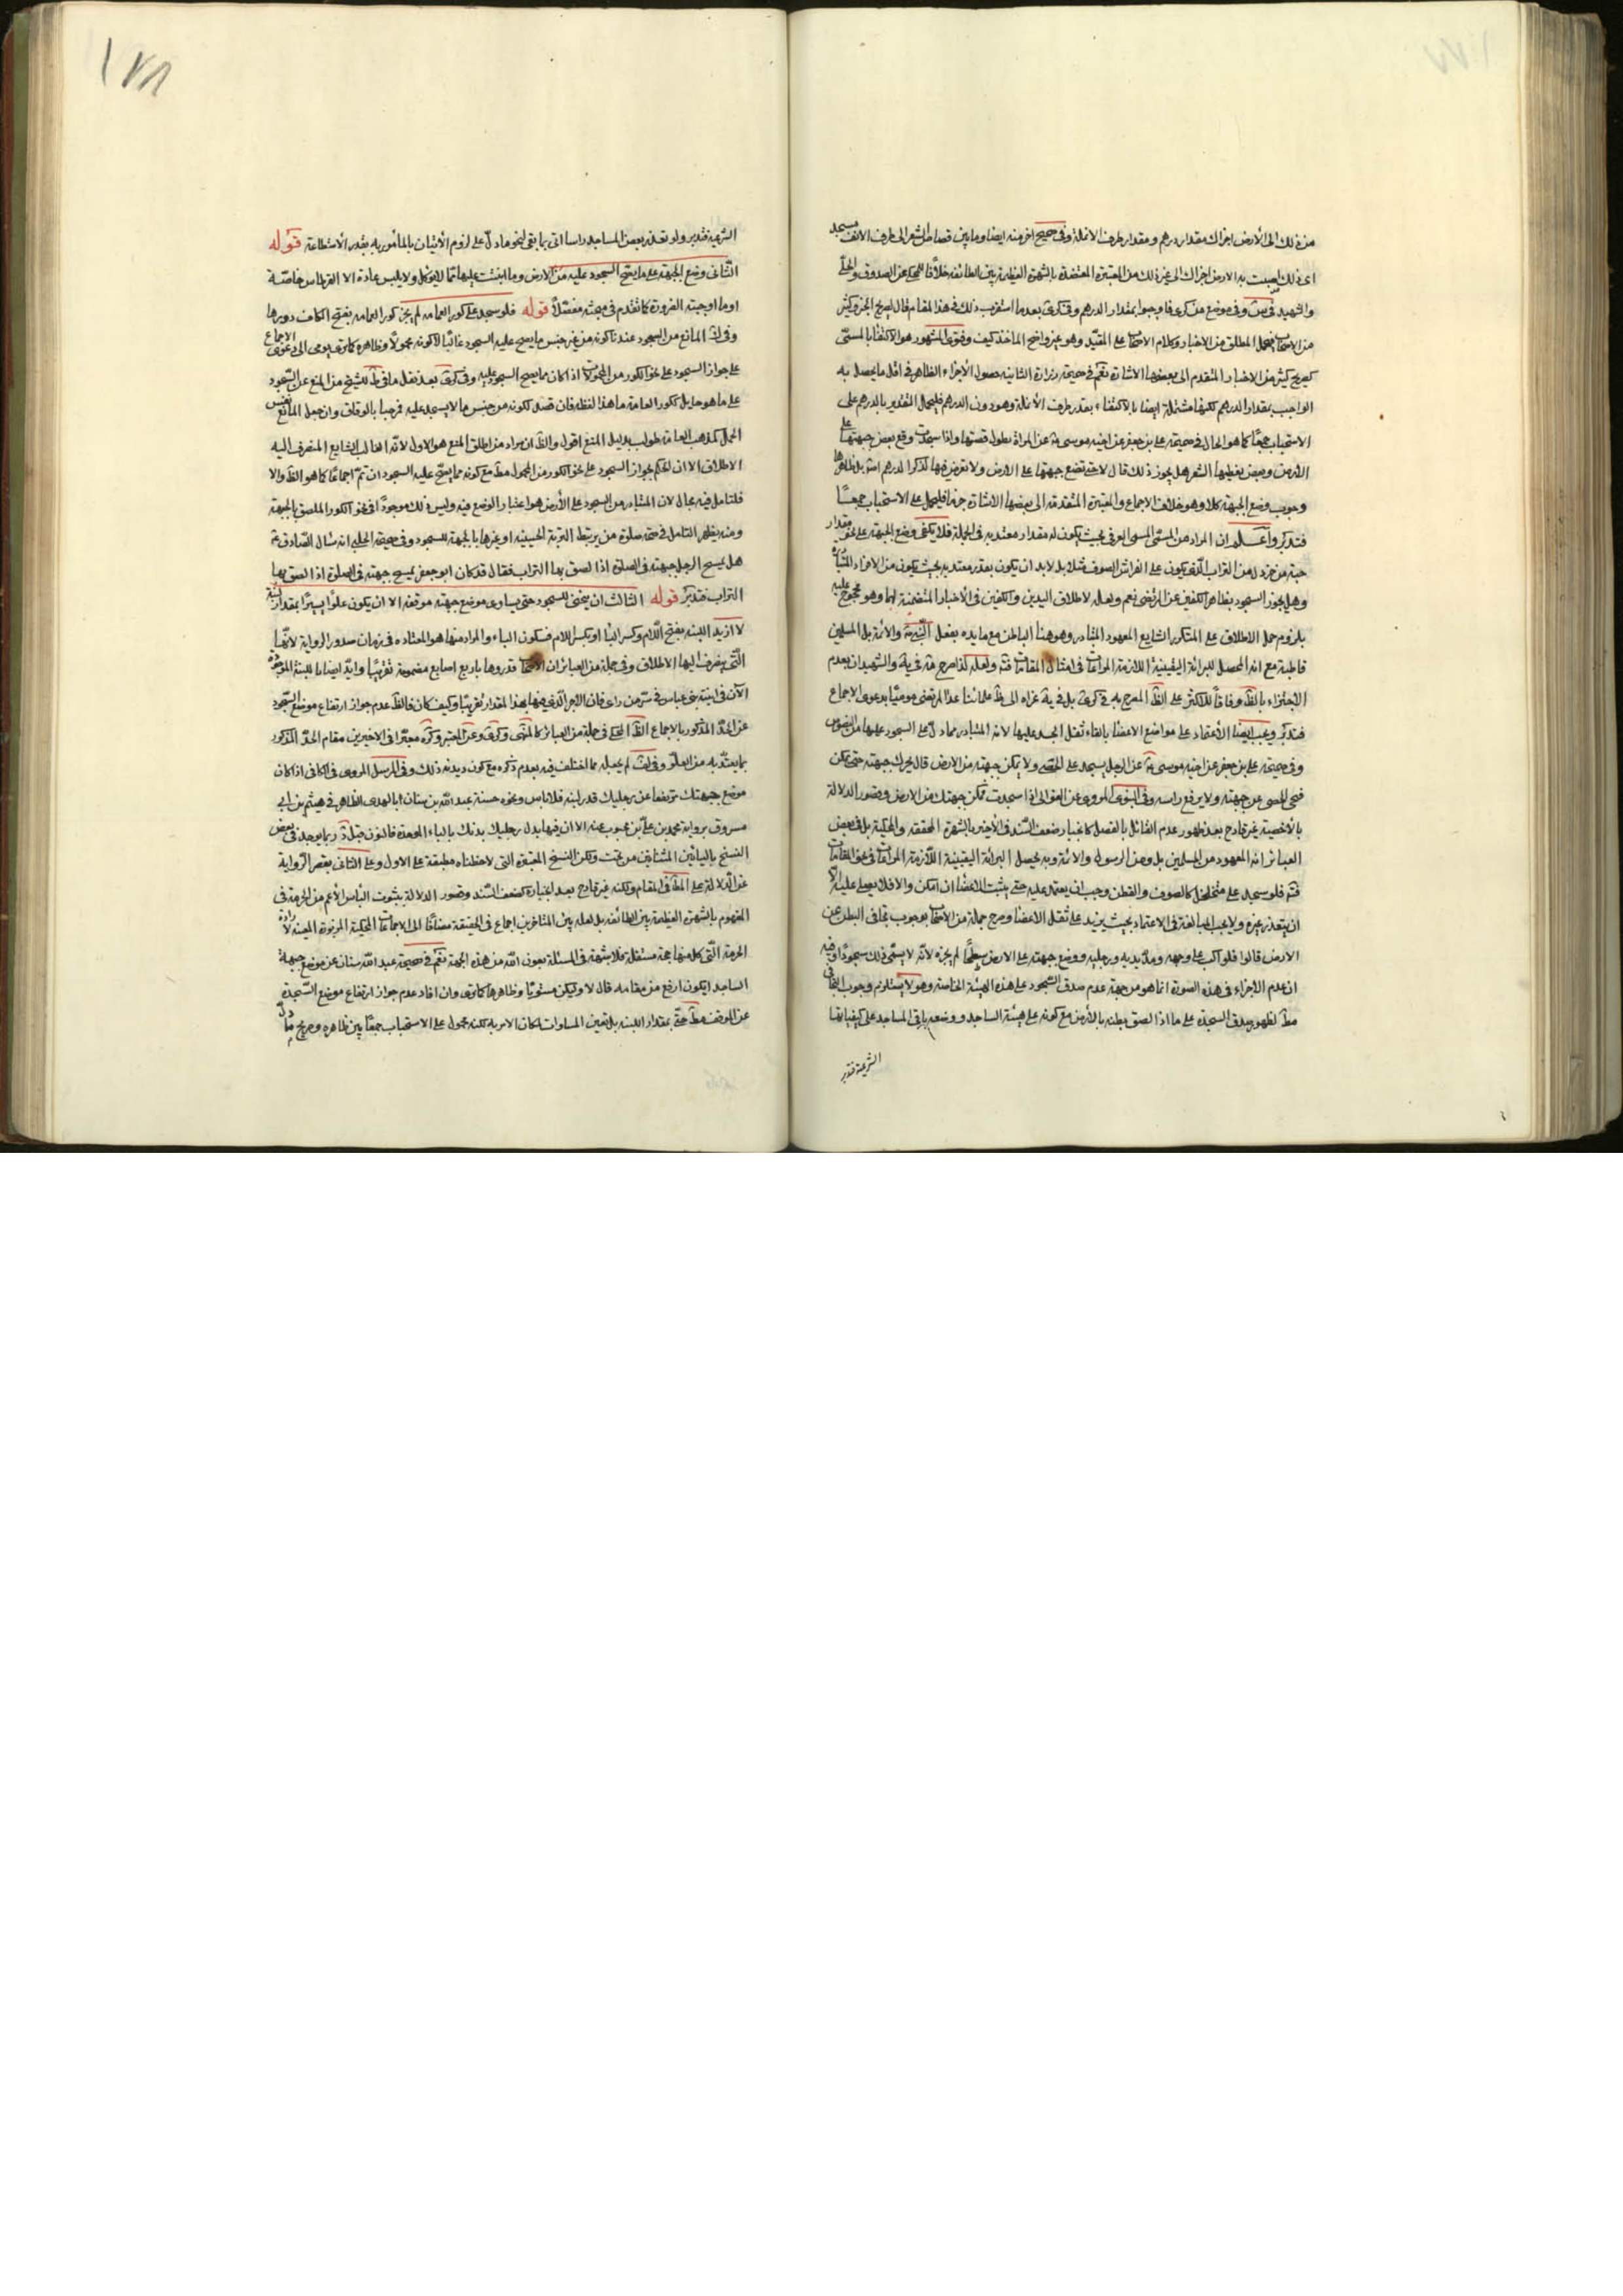 من ذلك الى الأرض اجزاك مقدار درهم ومقدار طرف الانملة وفى صحيح اخر منه ايضا وما بين قصاص الشعر الى طرف الانف مسجد
اى ذلك اصبت به الارض اجزاك الى غير ذلك من المعتبرة المعتضدة بالشهرة العظيمة بين الطائفه خلافا للمحكى عن الصدوق والحلّى
والشهيد فى س وفى موضع من كرى فاوجبوا مقدار الدرهم وفى كرى بعد ما استقرب ذلك فى هذا المقام قال لصريح الخبر وكثير
من الاصحاب فيحمل المطلق من الاخبار وكلام الاصحاب على المقيّد وهو غير واضح الماخذ كيف وفتوى المشهور هو الاكتفا بالمسمّى
كصريح كثير من الاخبار المتقدم الى بعضها الاشارة نعم فى صحيحة زرارة الثانيه حصول الأجزاء الظاهر فى اقل ما يحصل به
الواجب بمقدار الدرهم لكنها مشتملة ايضا بالاكتفاء بقدر طرف الأنملة وهو دون الدرهم فليحمل التقدير بالدرهم على
الاستحباب جمعًا كما هو الحال فى صحيحة على بن جعفر عن اخيه موسى ع عن المراة تطول قصتها واذا سجدت وقع بعض جبهتها على
الارض وبعض يغطيها الشعر هل يجوز ذلك قال لا حتى تضع جبهتها على الارض ولا تعرض فيها لذكر الدرهم اصلا بل ظاهرها
وجوب وضع الجبهة كلا وهو خلاف الاجماع والمعتبرة المتقدمة الى بعضها الاشارة جزما فليحمل على الاستحباب جمعًا
فتذكر واعلم ان المراد من المسمّى المسمى العرفى بحيث يكون له مقدار معتد به فى الجملة فلا يكفى وضع الجبهة على نحو مقدار
حبة من خردل من التراب الّذى يكون على الفراش الصوف مثلا بل لابد ان يكون بقدر معتد به بحيث يكون من الافراد المتبادرة
وهل يجوز السجود بظاهر الكفين عن المرتضى نعم ولعله لاطلاق اليدين والكفين فى الأخبار المتضمنة لهما وهو محجوج عليه
بلزوم حمل الاطلاق على المتكرر الشايع المعهود المتبادر وهو هنا الباطن مع مايده بفعل النبى ص والائمة بل المسلمين
قاطبة مع انه المحصل للبرائة اليقينية اللازمة المراعات فى امثال المقامات فتم ولعله لذا صرح مة فى ية والشهيدان بعدم
الاجتزاء بالظّ وفاقًا للاكثر على الظّ المصرح به فى كرى بل فى ية عزاه الى ظ علمائنا عدا المرتضى مومئا بدعوى الاجماع
فتدبّر ويجب ايضا الاعتماد على مواضع الاعضا بالقاء ثقل الجسد عليها لانه المتبادر مما دلّ على السجود عليها من النصوص
وفى صحيحة على بن جعفر عن اخيه موسى ع عن الرجل يسجد على الحصى ولا يمكن جبهته من الارض قال يحرك جبهته حتى يمكن
فنحى الحصى عن جبهته ولا يرفع راسه وفى النبوى المروى عن العوالى اذا سجدت تمكن جبهتك من الارض وقصور الدلالة
بالأخصية غير قادح بعد ظهور عدم القائل بالفصل كانجبار ضعف السّند فى الأخير بالشهرة المحققة والمحكية بل فى بعض
العبائر انه المعهود من المسلمين بل ومن الرسول والائمة وبه يحصل البرائة اليقينية اللّازمة المراعات فى نحو المقامات
فتم فلو سجد على متخلخل كالصوف والقطن وجب ان يعتمد عليه حتى يثبت الاعضا ان امكن والا فلا يصلى عليه الا
ان يتعذر غيره ولا يجب المبالغة فى الاعتماد بحيث يزيد على ثقل الاعضا وصرح جملة من الاصحاب بوجوب تجافى البطن عن
الارض قالوا فلو اكب على وجهه ومدّ يديه ورجليه ووضع جبهته على الارض سطحًا لم يجزه لأنّه لا يسمّى ذلك سجودًا وفيه
ان عدم الاجزاء فى هذه الصورة انما هو من جهة عدم صدق السّجود على هذه الهيئة الخاصة وهو لا يستلزم وجوب التجافى
مطّ لظهور صدق السجدة على ما اذا الصق بطنه بالأرض مع كونه على هيئة الساجد ووضعه باقى المساجد على كيفياتها
الشرعية فتدبر
١٧٨
الشرعية فتدبر ولو تعذر بعض المساجد راسا اتى بما بقى لنحو ما دلّ على لزوم الأتيان بالمأمور به بقدر الأستطاعة قوله
الثّانى وضع الجبهة على ما يصح السجود عليه من الارض وما انبتت عليها ممّا لا يؤكل ولا يلبس عادة الا القرطاس خاصّة
او ما اوجبته الضرورة كما تقدم فى مبحثه مفصّلاً قوله فلو سجد على كور العمامه لم يجز كور العمامه بفتح الكاف دورها
وفى انّ المانع من السجود عندنا كونه من غير جنس ما يصح عليه السجود غالبًا لا كونه محمولاً وظاهره كما ترى يومى الى دعوى الاجماع
على جواز السجود على نحو الكور من المحمولات اذا كان مما يصح السجود عليه وفى كرى بعد نقل ما فى ف للشيخ من المنع عن السّجود
على ما هو حامل ككور العمامة ما هذا لفظه فان قصد لكونه من جنس ما لا يسجد عليه فمرحبا بالوفاق وان جعل المانع نفس
الحمل كمذهب العامة طولب بدليل المنع اقول والظّ ان مراد من اطلق المنع هو الاول لأنّه الغالب الشايع المنصرف اليه
الاطلاق الا ان الحكم بجواز السجود على نحو الكور من المحمول مطّ مع كونه مما يصحّ عليه السجود ان تمّ اجماعًا كما هو الظّ والا
فللتامل فيه مجال لان المتبادر من السجود على الأرض هو اعتبار الوضع فيه وليس ذلك موجودًا فى نحو الكور الملصق بالجبهة
ومنه يظهر التامل فى صحة صلوة من يربط التربة الحسينية او غيرها بالجبهة للسجود وفى صحيحة الحلبى انه سال الصّادق ع
هل يمسح الرجل جبهته فى الصلوة اذا لصق بها التراب فقال قد كان ابو جعفر يمسح جبهته فى الصلوة اذا الصق بها
التراب فتدبّر قوله الثالث ان ينحنى للسجود حتى يساوى موضع جبهته موقفه الا ان يكون علوًا يسيرًا بمقدار لبنة
لا ازيد اللبنه بفتح الّلام وكسر البا او بكسر اللام فسكون الباء والمراد منها هو المعتاده فى زمان صدور الرواية لانّها
الّتى ينصرف اليها الاطلاق وفى جملة من العبائر ان الاصحاب قدروها باربع اصابع مضمومة تقريبًا وايّد ايضا باللبنة الموجودة
الآن فى ابنية بنى عباس فى سرّ من راى فان الاجر الّذى فيها بهذا المقدار تقريبًا وكيف كان فالظّ عدم جواز ارتفاع موضع السّجود
عن الحدّ المذكور بالاجماع الظّ المحكى فى جملة من العبائر كالمنتهى وكرى وعن المعتبر وكره معبّرا فى الاخيرين مقام الحدّ المذكور
بما يعتدّ به من العلوّ وفى لف لم يجعله مما اختلف فيه بعدم ذكره مع كون ديدنه ذلك وفى المرسل المروى فى الكافى اذا كان
موضع جبهتك مرتفعا عن رجليك قدر لبنه فلا باس ونحوه حسنة عبد اللّه بن سنان ابا لهدى الظاهر فى هيثم بن ابى
مسروق برواية محمد بن علىّ بن محبوب عنه الا ان فيها بدل رجليك بدنك بالباء الموحدة فالنون قبله ربما يوجد فى بعض
النسخ باليائين المثناتين من تحت ولكن النسخ المعتبرة التى لاحظناه مطبقة على الاول وعلى الثانى يقصر الرّواية
عن الّدلالة على المطّ فى المقام ولكنه غير قادح بعد انجباره كضعف السّند وقصور الدلالة بثبوت البأس الأعم من الحرمة فى
المفهوم بالشهرة العظيمة بين الطائفه بل لعله بين المتاخرين اجماع فى الحقيقة مضافًا الى الاجماعات المحكية المزبورة المعينه لارادة
الحرمة الّتى كل منها حجة مستقلة فلا شبهة فى المسئلة بعون اللّه من هذه الجهة نعم فى صحيحة عبد اللّه سنان عن موضع جبهة
الساجد ايكون ارفع من مقامه قال لا وليكن مستويًا وظاهرها كما ترى وان افاد عدم جواز ارتفاع موضع السّجدة
عن الموقف مطّ حتّى بمقدار اللبنه بل تعين المساوات لمكان الامر به لكنه محمول على الاستحباب جمعًا بين ظاهره وصريح ما دلّ